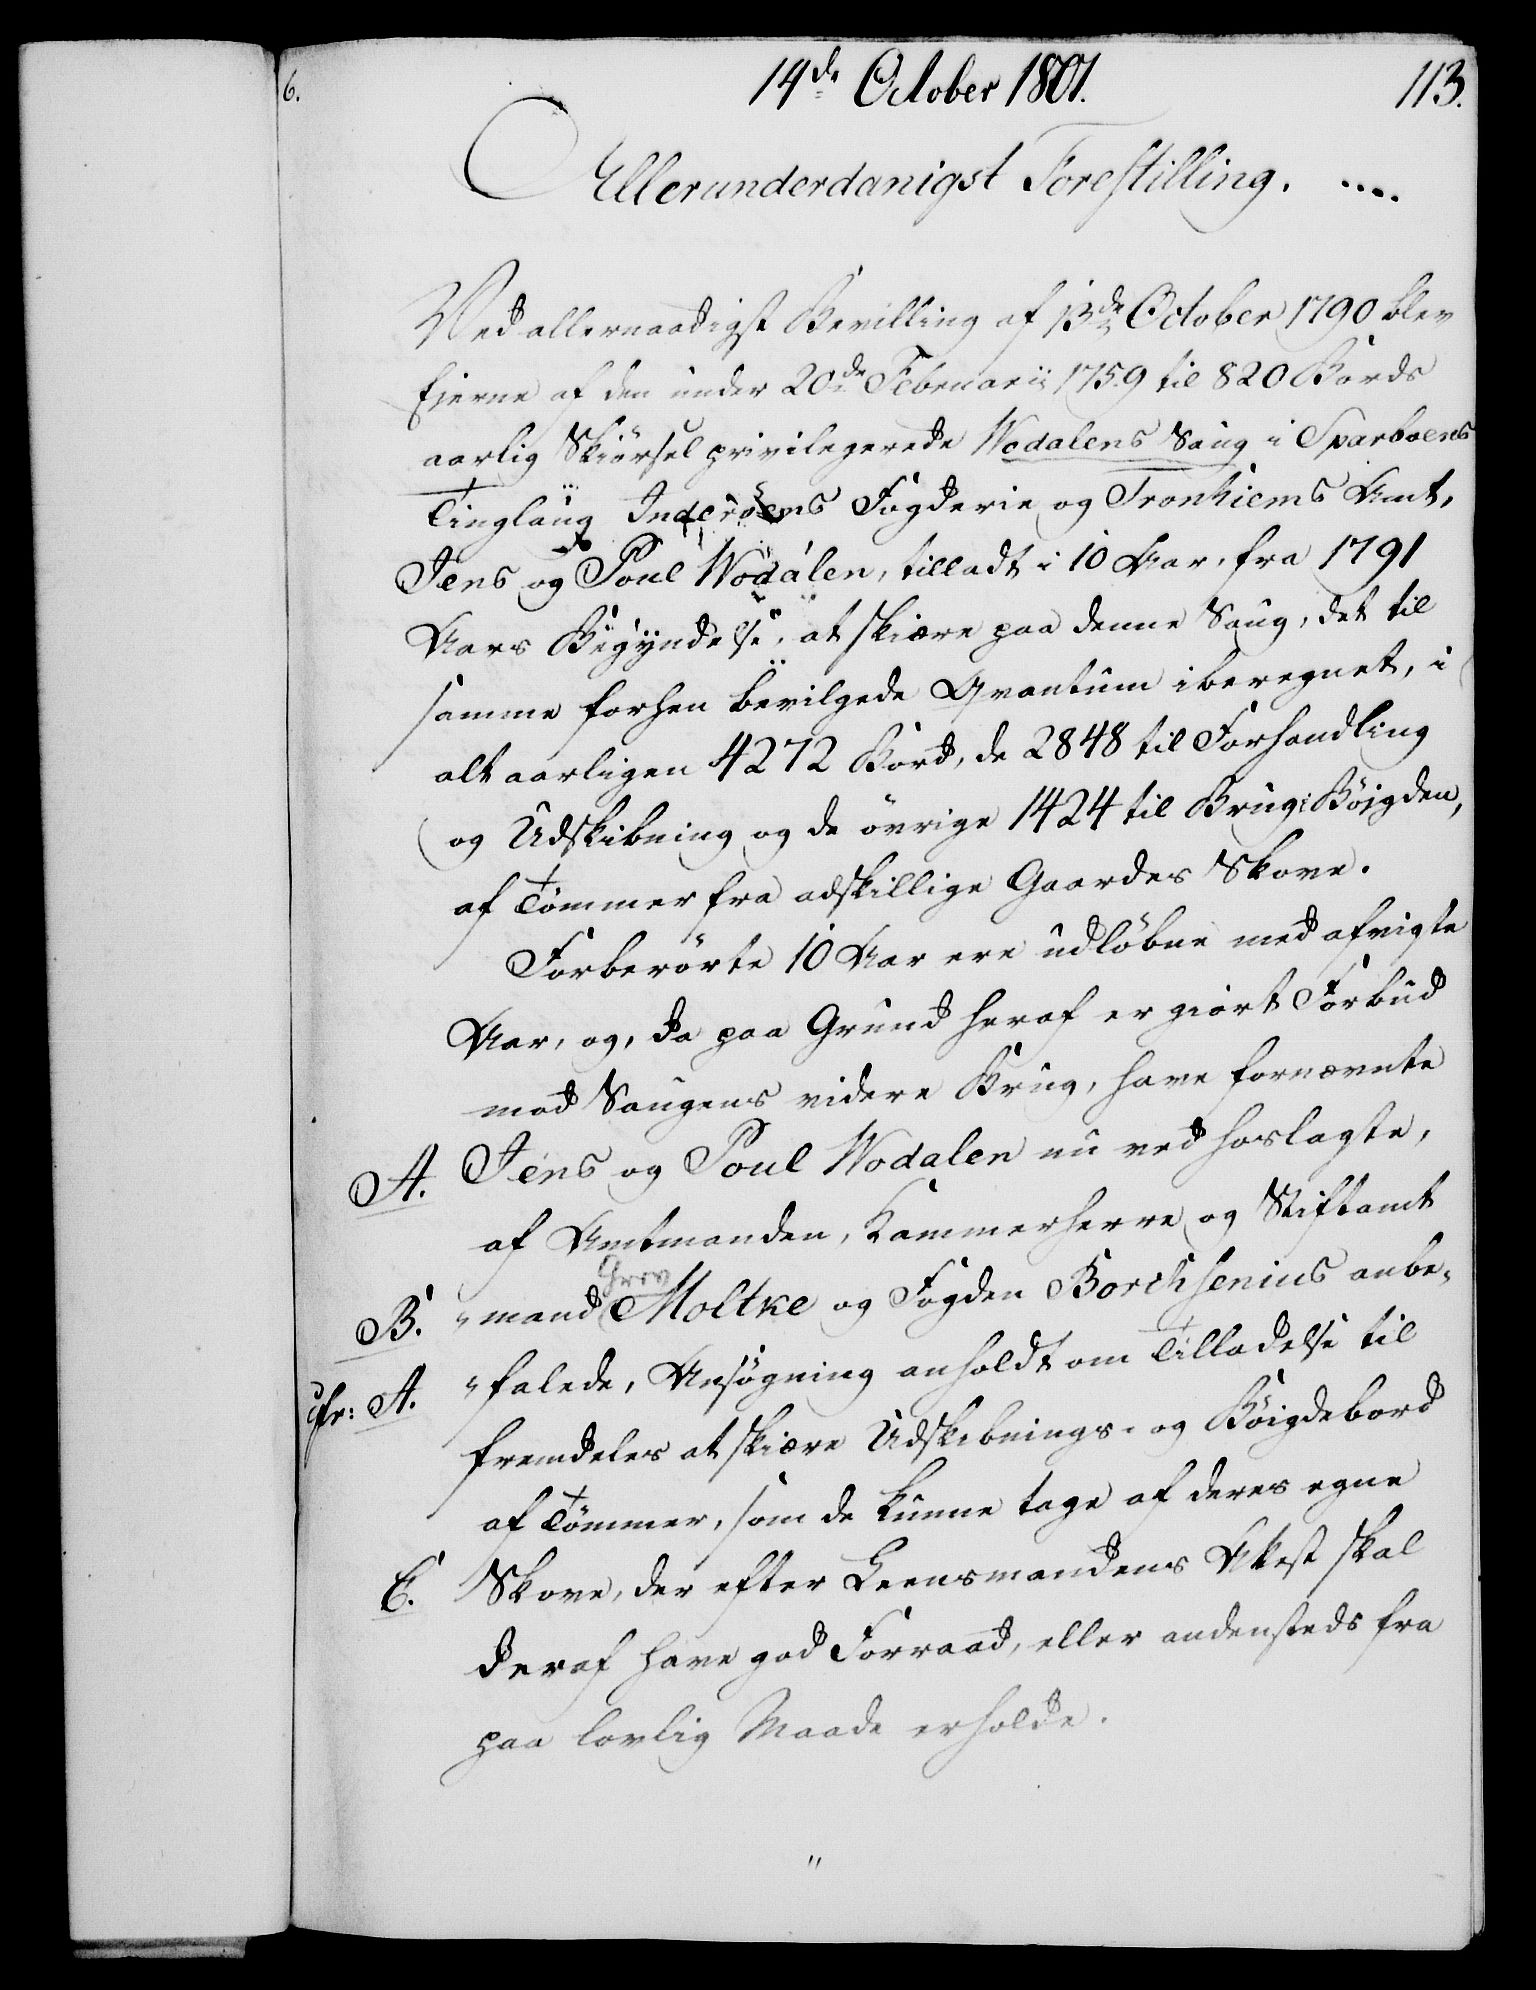 6.
14de October 1801.
113.
Allerunderdanigst Forestilling. ....
Ved allernaadigst Bevilling af 13de October 1790 blev
Ejerne af den under 20de Februarii 1759 til 820 Bords
aarlig Skiørsel privilegerede Wodalens Saug i Sparboens
Tinglaug Inderøens Fogderie og Tronhiems Amt,
Jens og Poul Wodalen, tilladt i 10 Aar, fra 1791
Aars Begyndelse, at skiære paa denne Saug, det til
samme forhen bevilgede Qvantum iberegnet, i
alt aarligen 4272 Bord, de 2848 til Forhandling
og Udskibning og de øvrige 1424 til Brug i Bøigden,
af Tømmer fra adskillige Gaardes Skove.
Forberørte 10 Aar ere udløbne med afvigte
Aar, og, da paa Grund heraf er giort Forbud
mod Saugens videre Brug, have fornævnte
A. Jens og Poul Wodalen nu ved hoslagte,
af Amtmanden, Kammerherre og Stiftamt
Grev
B. "mand Moltke og Fogden Borchsenius anbe-
cfr: A. "falede, Ansøgning anholdt om Tilladelse til
fremdeles at skiære Udskibnings- og Bøigdebord
af Tømmer, som de kunne tage af deres egne
C. Skove, der efter Leensmandens Attest skal
deraf have god Forraad, eller andensteds fra
paa lovlig Maade erholde.
"